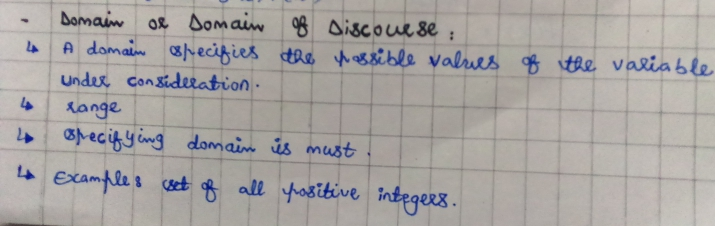 - Domain or Domain of Discourse :
↳ A domain specifies the possible values of the variable
under consideration.
↳ range
↳ specifying domain is must.
↳ Example : set of all positive integers.